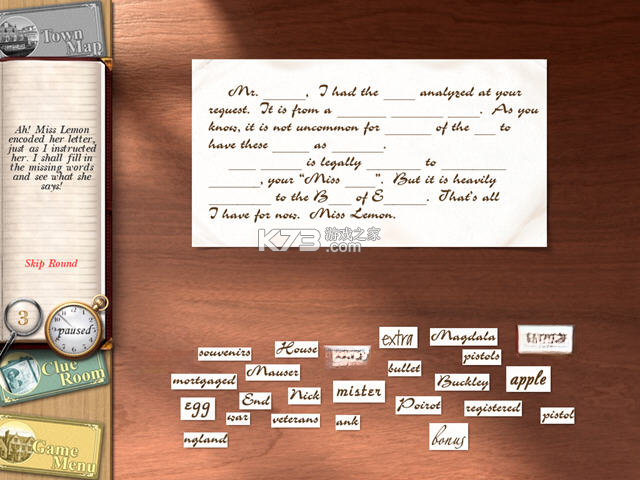 Town
Map
Ah! Miss Lemon
encoded her letter,
just as I instructed
her. I shall fill in
the missing words
and see what she
says!
Skip Round
3
paused
Clue
Room
Game
Menu
Mr. ______, I had the ____ analyzed at your
request. It is from a ______ ______ ____. As you
know, it is not uncommon for ______ of the ___ to
have these _____ as _______.
____ _____ is legally _____ to ________
_______, your "Miss ____". But it is heavily
________ to the B____ of E______. That's all
I have for now. Miss Lemon.
K73 游戏之家
.com
extra
Magdala
souvenirs
House
pistols
Mauser
bullet
mortgaged
Buckley
apple
Nick
mister
egg
End
Poirot
registered
war
veterans
ank
pistol
ngland
bonus